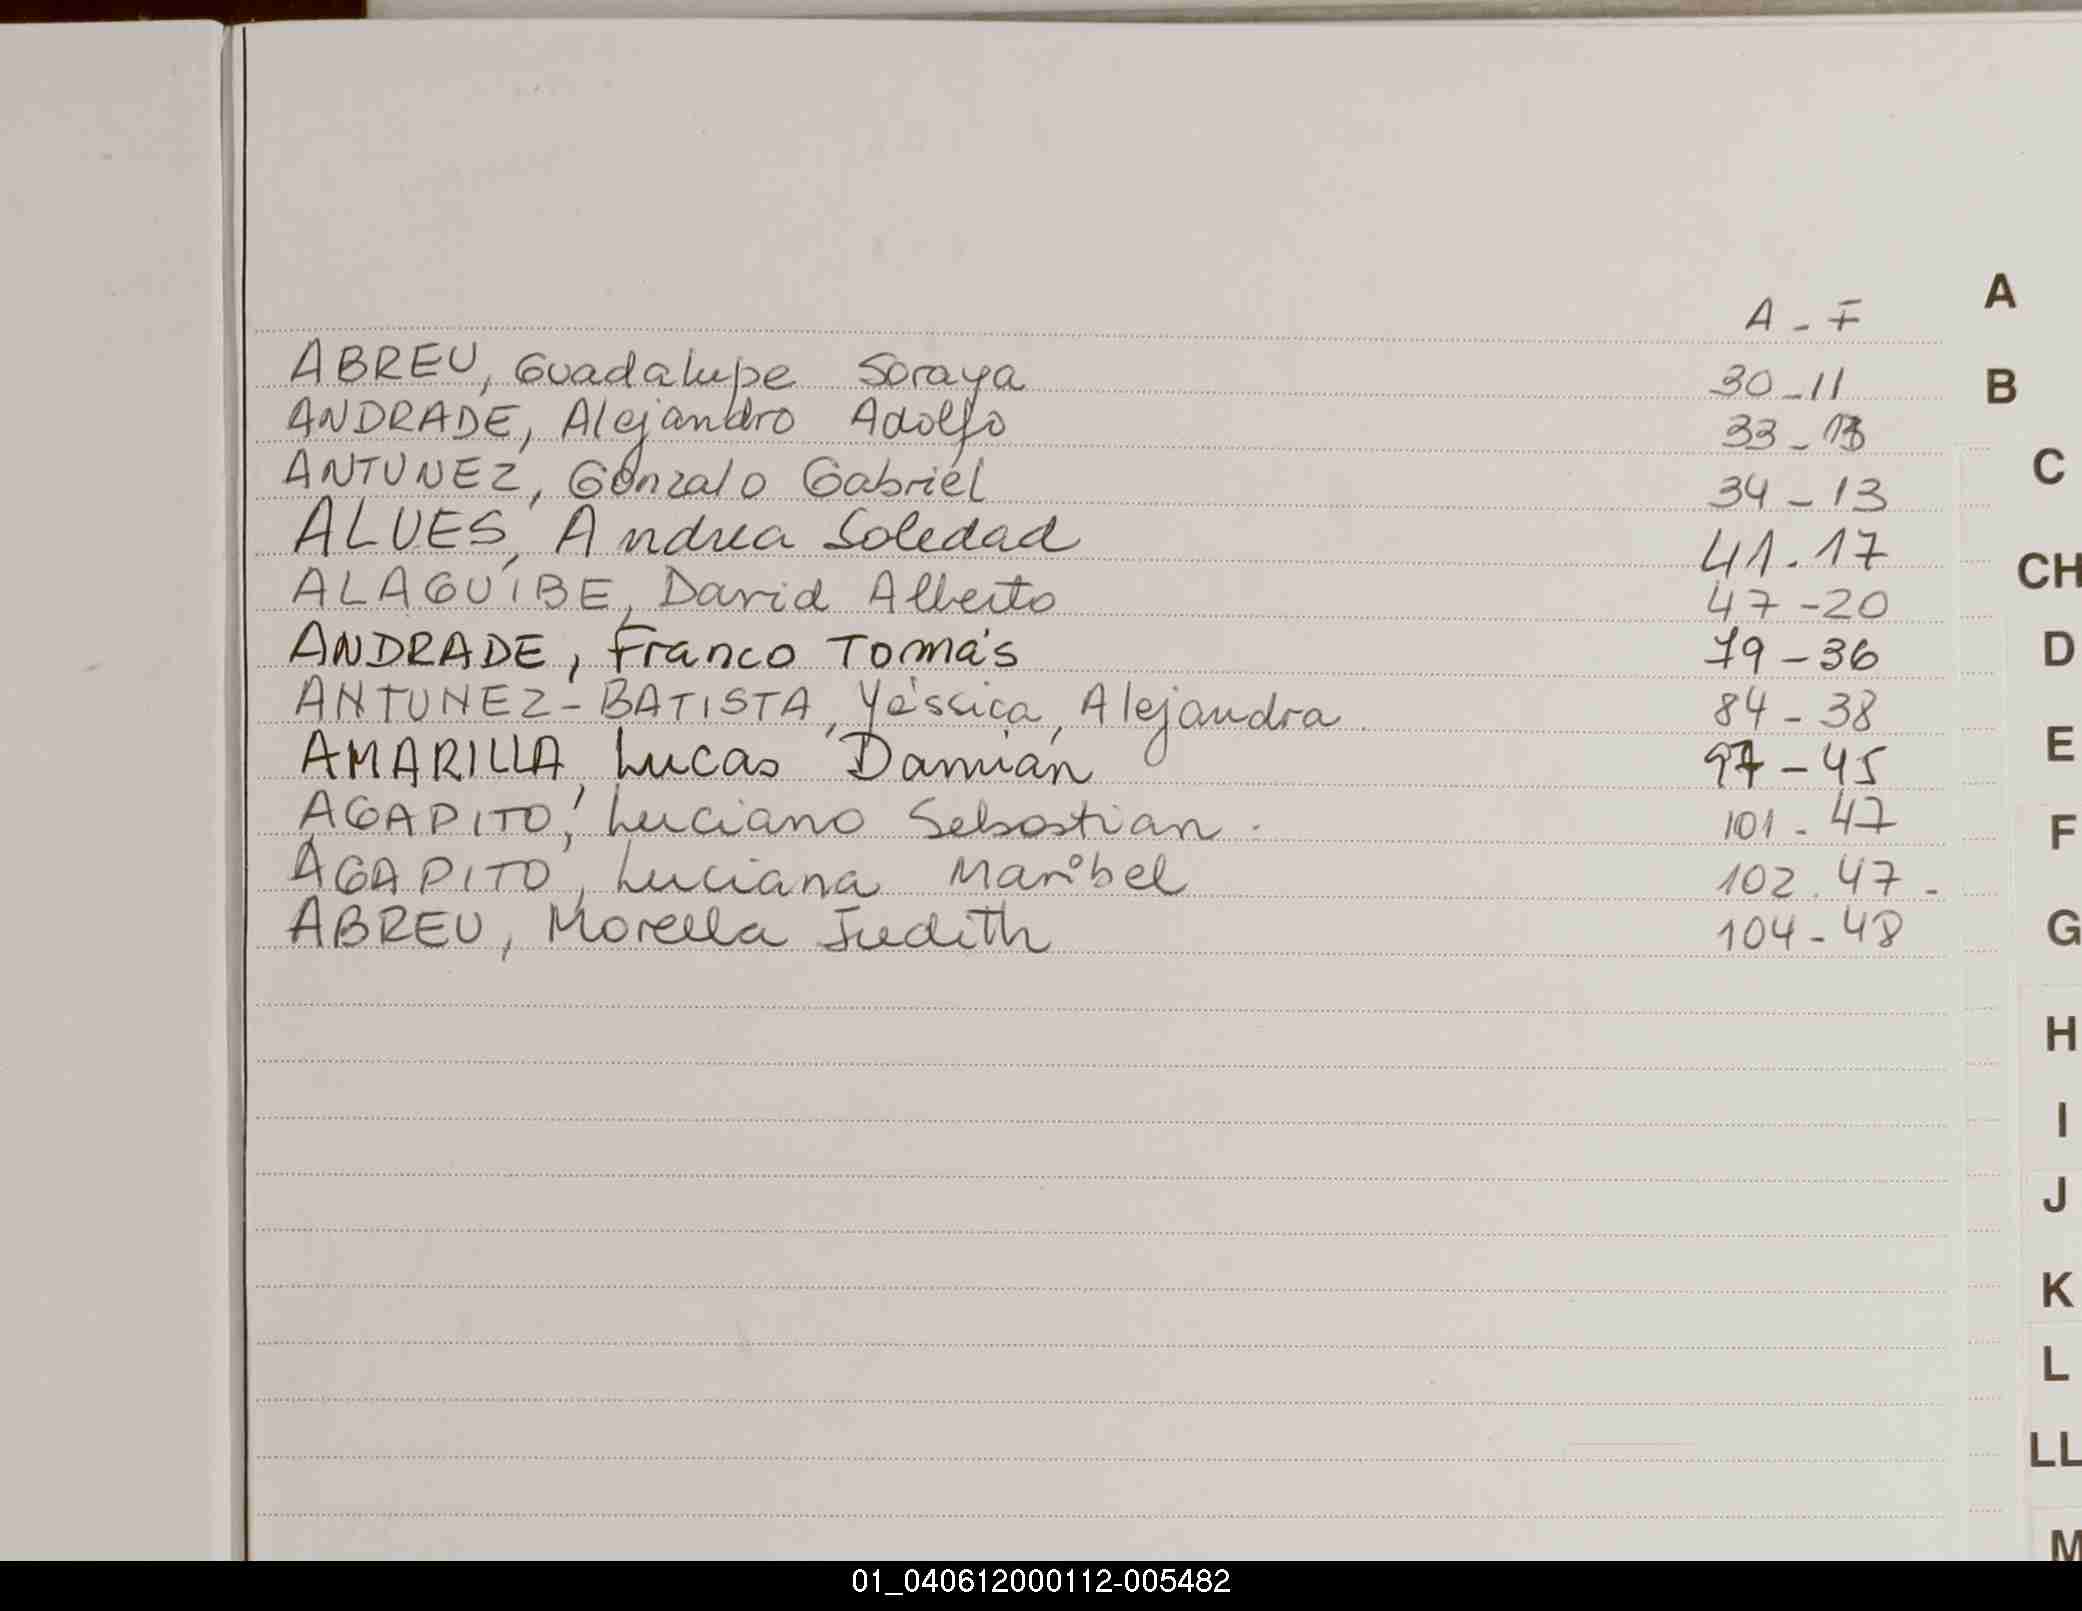 A - F
A
ABREU, Guadalupe Soraya 30-11
B
ANDRADE, Alejandro Adolfo 33-13
C
ANTUNEZ, Gonzalo Gabriel 34-13
ALVES, Andrea Soledad 41.17
CH
ALAGUIBE, David Alberto 47-20
ANDRADE, Franco Tomás 79-36
D
ANTUNEZ-BATISTA, Yéssica, Alejandra 84-38
E
AMARILLA, Lucas Damián 97-45
AGAPITO, Luciano Sebastian. 101-47
F
AGAPITO, Luciana Maribel 102.47-
ABREU, Morella Judith 104-48
G
H
I
J
K
L
LL
M
01_040612000112-005482